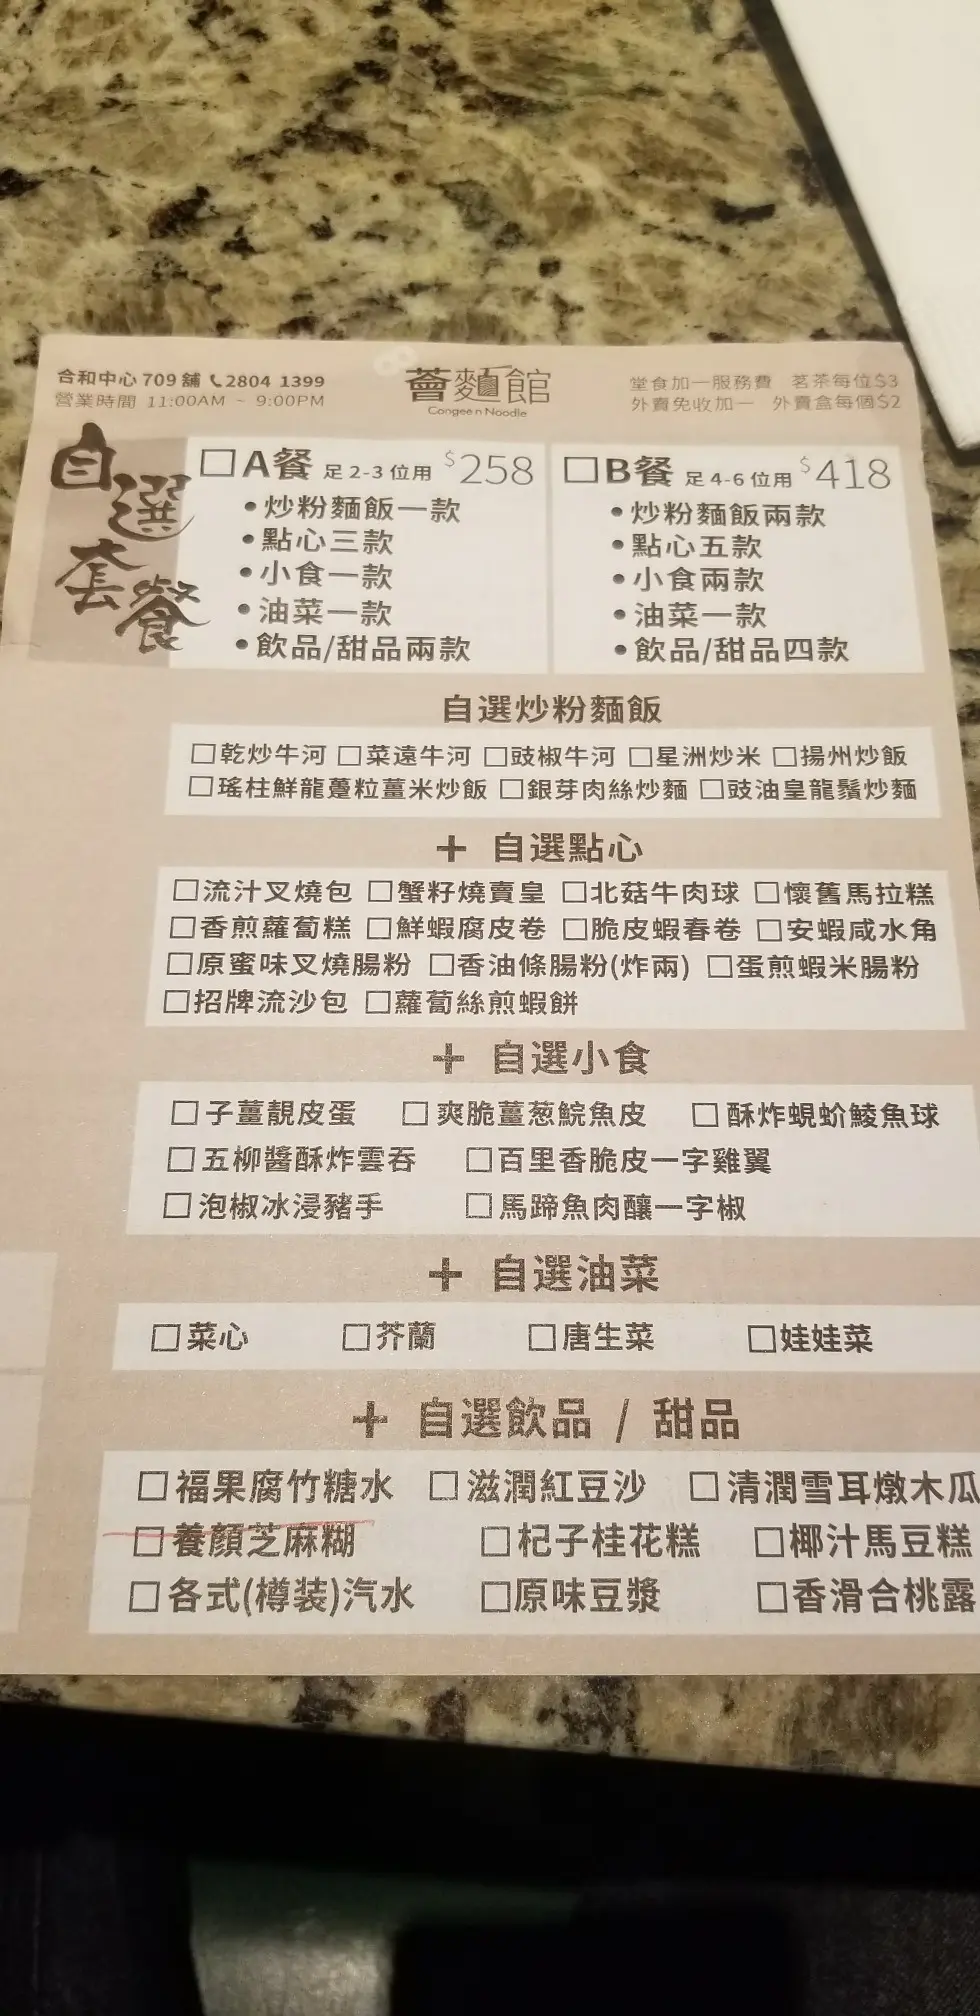 合和中心 709 舖 2804 1399
營業時間 11:00AM ~ 9:00PM
薈麵館
Congee n Noodle
堂食加一服務費 茗茶每位$3
外賣免收加一 外賣盒每個$2
自選套餐
□A餐 足2-3位用 $258
•炒粉麵飯一款
•點心三款
•小食一款
•油菜一款
•飲品/甜品兩款
□B餐 足4-6位用 $418
•炒粉麵飯兩款
•點心五款
•小食兩款
•油菜一款
•飲品/甜品四款
自選炒粉麵飯
□乾炒牛河 □菜遠牛河 □豉椒牛河 □星洲炒米 □揚州炒飯
□瑤柱鮮龍躉粒薑米炒飯 □銀芽肉絲炒麵 □豉油皇龍鬚炒麵
+ 自選點心
□流汁叉燒包 □蟹籽燒賣皇 □北菇牛肉球 □懷舊馬拉糕
□香煎蘿蔔糕 □鮮蝦腐皮卷 □脆皮蝦春卷 □安蝦咸水角
□原蜜味叉燒腸粉 □香油條腸粉(炸兩) □蛋煎蝦米腸粉
□招牌流沙包 □蘿蔔絲煎蝦餅
+ 自選小食
□子薑靚皮蛋 □爽脆薑葱鯇魚皮 □酥炸蜆蚧鯪魚球
□五柳醬酥炸雲吞 □百里香脆皮一字雞翼
□泡椒冰浸豬手 □馬蹄魚肉釀一字椒
+ 自選油菜
□菜心 □芥蘭 □唐生菜 □娃娃菜
+ 自選飲品 / 甜品
□福果腐竹糖水 □滋潤紅豆沙 □清潤雪耳燉木瓜
□養顏芝麻糊 □杞子桂花糕 □椰汁馬豆糕
□各式(樽装)汽水 □原味豆漿 □香滑合桃露